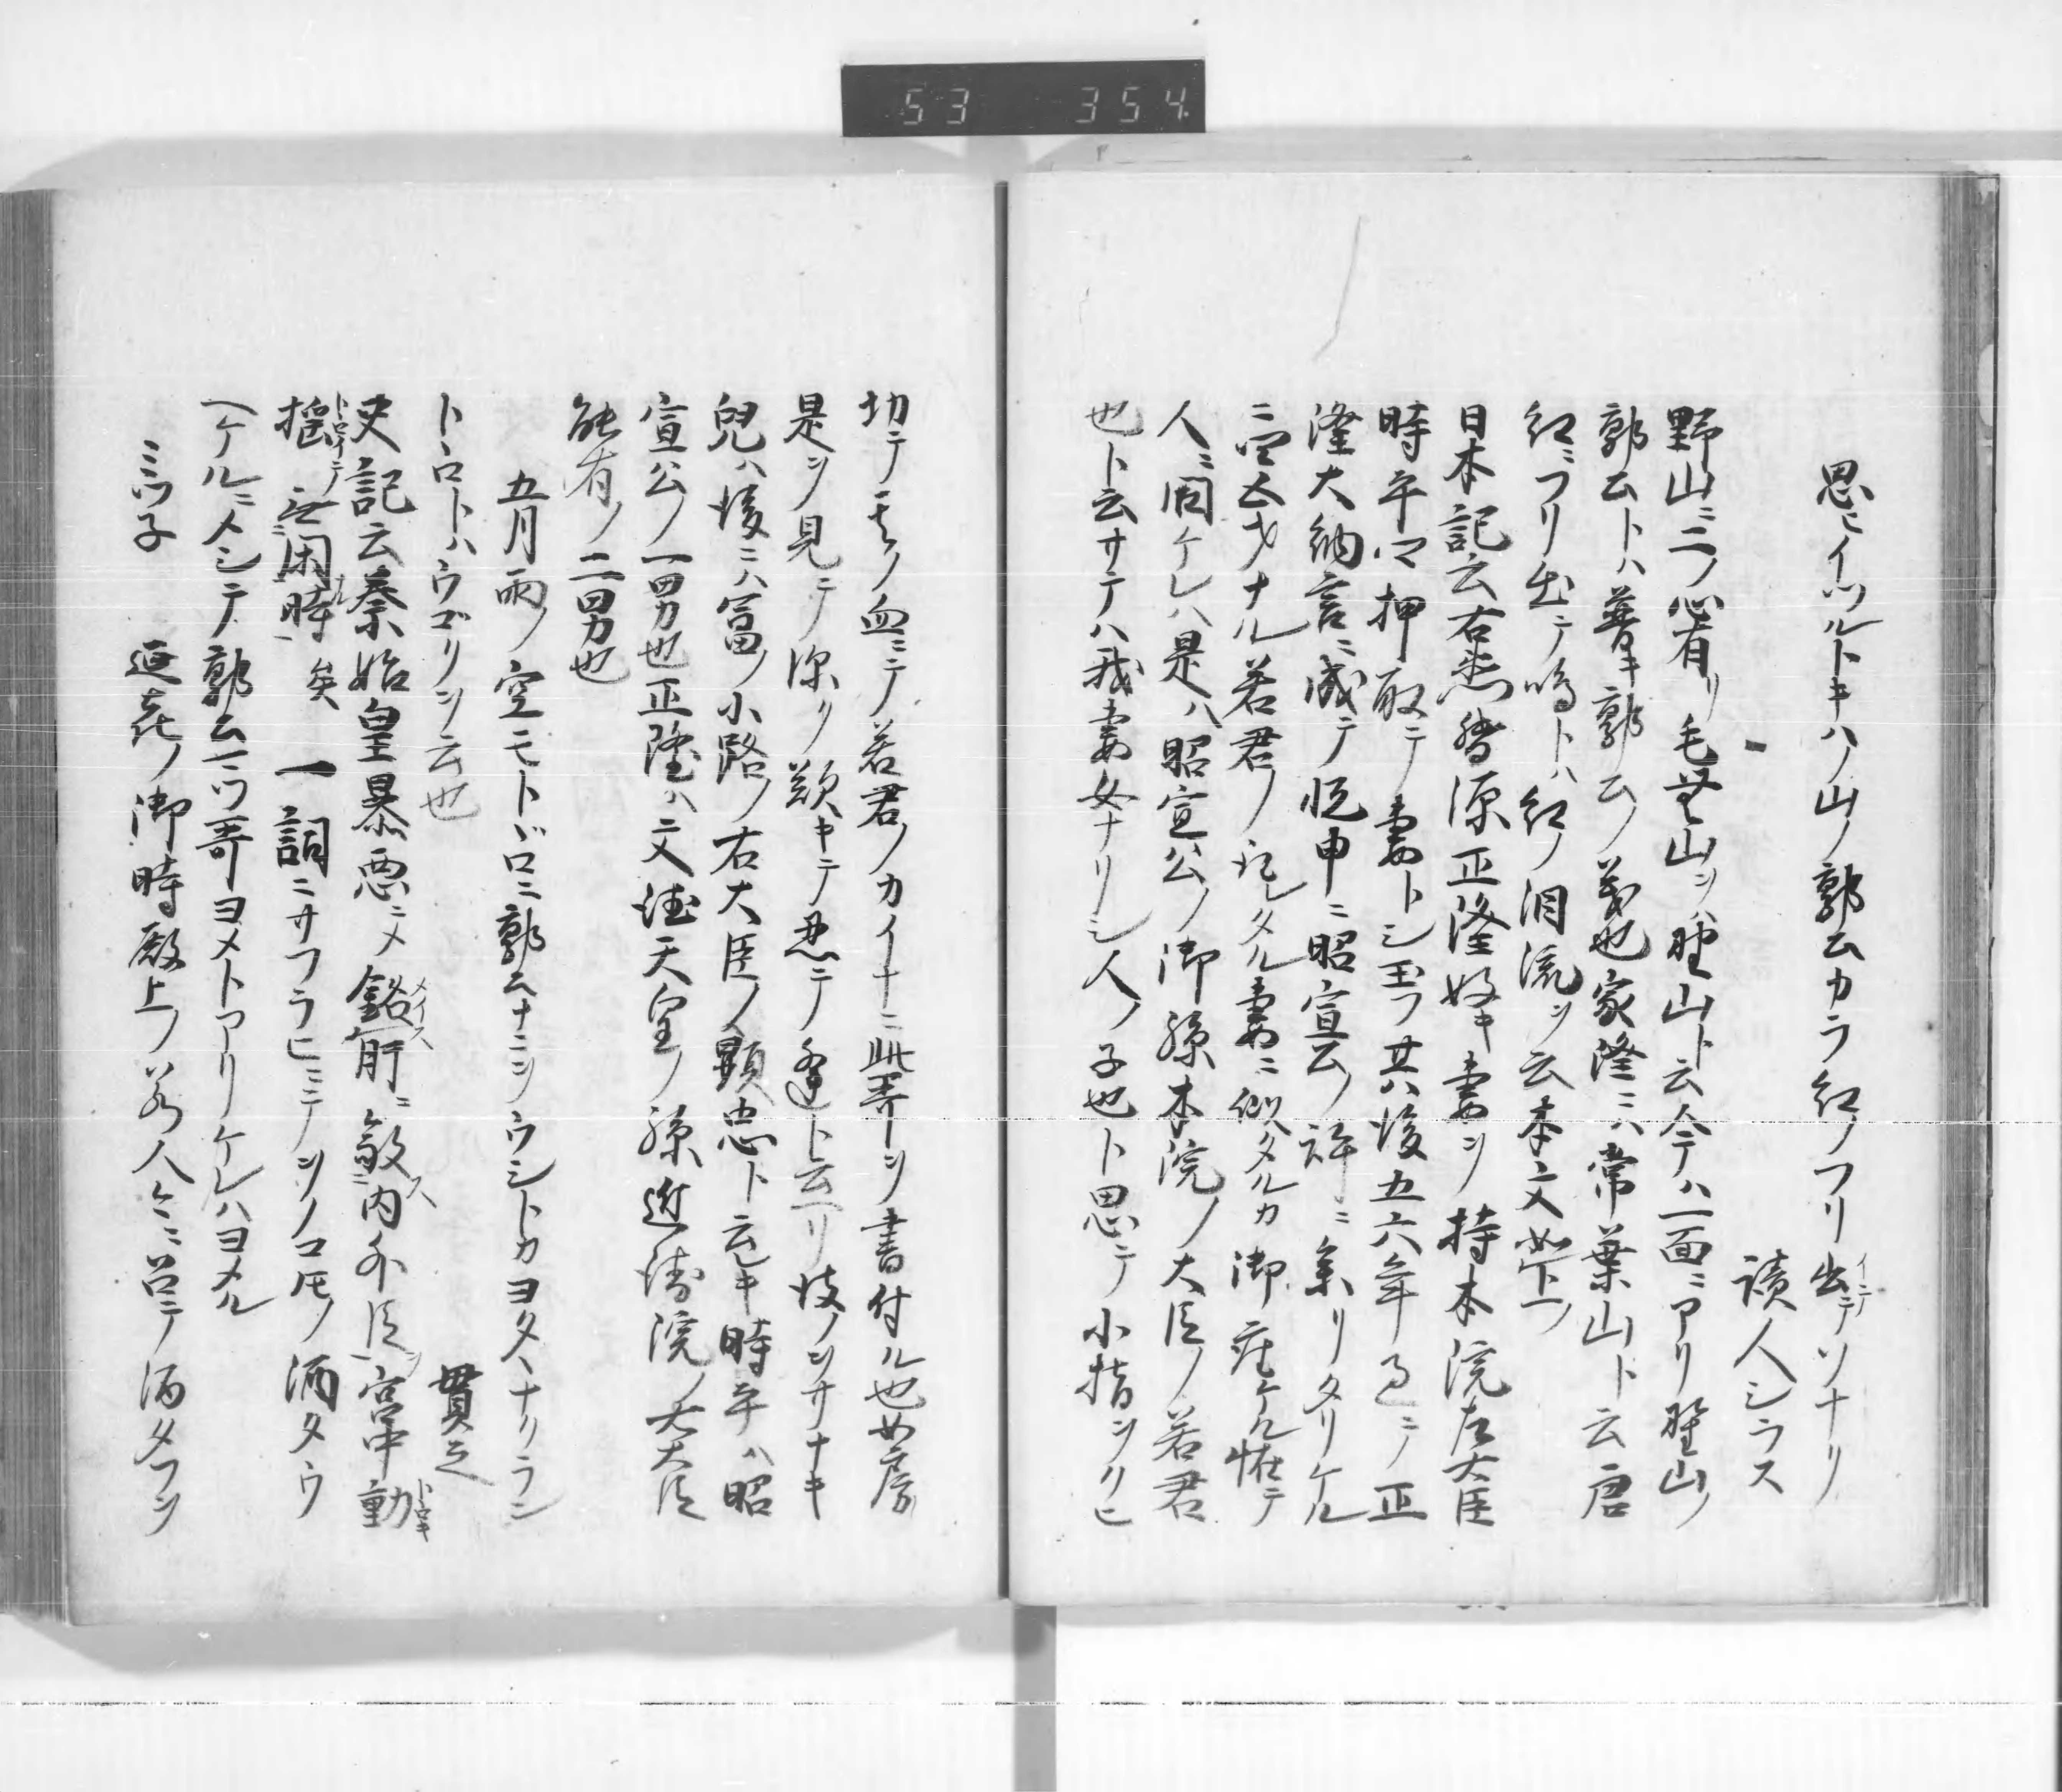 53 354
思ニイツルトキハノ山ノ郭公カラ紅ノフリ出テソナリ
イテ
讀人シラス
野山ニ二ノ心有リ毛无山ヲハ野山ト云今ハ一面ニアリ野山ノ
郭公トハ普キ郭公ノ義也家隆ニハ常葉山ト云唐
紅ニフリ出テ鳴トハ紅ノ泪流ヲ云本文如下
日本記云右馬督源正隆好キ妻ヲ持本院左大臣
時平公押取テ妻トシ玉フ其後五六年過テ正
隆大納言ニ成テ悦申ニ昭宣公ノ許ニ参リタリケル
ニ四五才ナル若君ノ トレタル妻ニ似タルカ御座ケル恠テ
人ニ問ケレハ是ハ昭宣公ノ御孫本院ノ大臣ノ若君
也ト云サテハ我妻女ナリシ人ノ子也ト思テ小指ヲクヒ
切テ其ノ血ニテ若君ノカイナニ此哥ヲ書付ル也女房
是ヲ見テ深ク歎キテ忍テ逢ト云リ彼ノヲサナキ
兒ハ後ニハ富ノ小路ノ右大臣ノ顕忠ト云キ時平ハ昭
宣公ノ一男也正隆ハ文徳天皇ノ孫近院ノ右大臣
能有ノ二男也
五月雨ノ空モトヾロニ郭公ナニヲウシトカヨタヽナクラン
貫之
トヽロトハウゴクヲ云也
史記云秦始皇暴悪ニメ 銘肝ニ 敵内外臣ヲ宮中動
メイス
トヽロキ
揺 無閑時矣 一詞ニサフラヒニテヲノコ圧ノ酒タウ
トロイテ
ヘケルニメシテ郭公マツ哥ヨメトアリケレハヨメル
ミツ子 延喜ノ御時殿上ノ 人々ニ召テ酒タフヲ